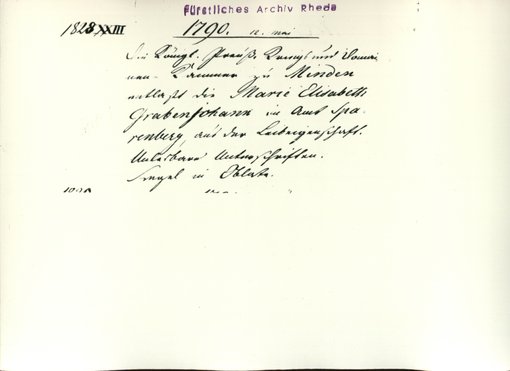 Fürstliches Archiv Rheda
1828 XXIII 1790. 12. Mai
Die Königl. Preuß. Kriegs und Domai
nen-Kammer zu Minden
entlaßt die Marie Elisabeth
Grabenjohann im Amt Spa-
renberg aus der Leibeigenschaft.
Unlesbare Unterschriften.
Siegel in Oblate.